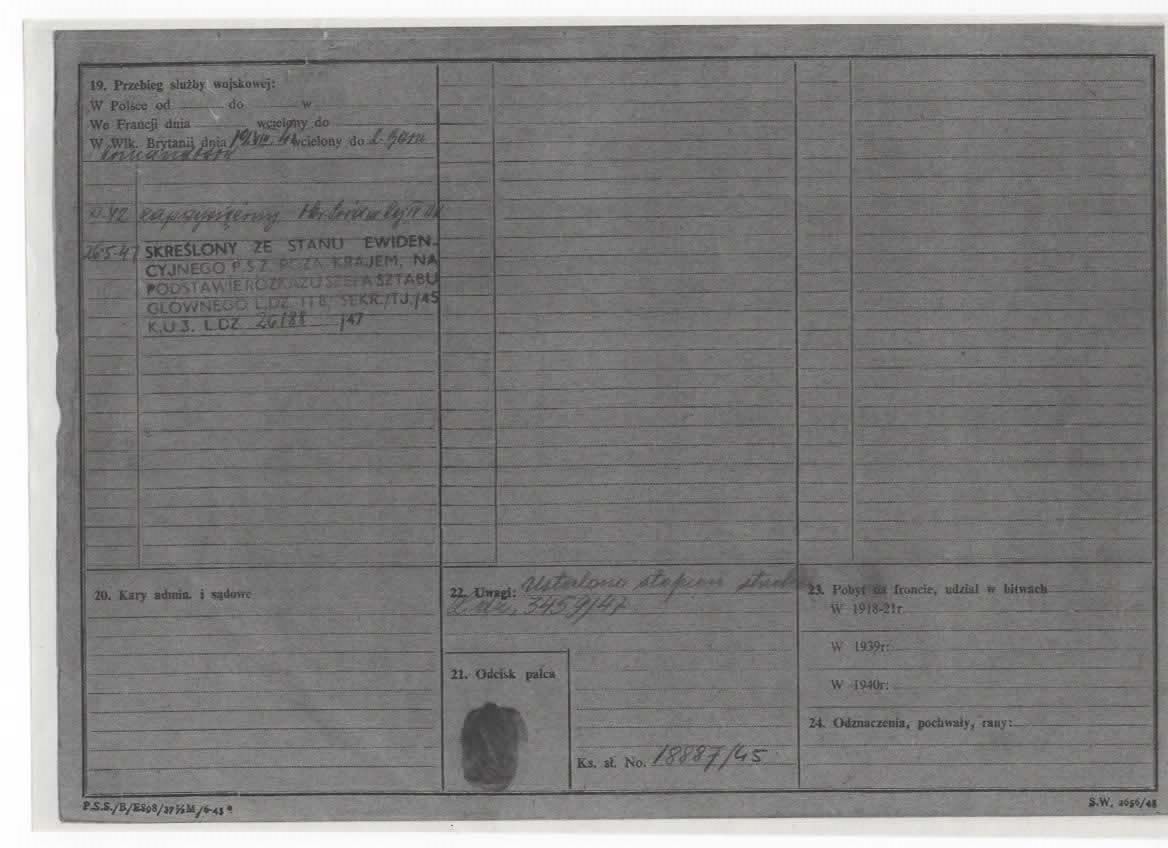 19. Przebieg służby wojskowej:
W Polsce od do w
We Francji dnia wcielony do
W Wlk. Brytanii dnia wcielony do
26-5-47 SKREŚLONY ZE STANU EWIDEN-
CYJNEGO P.S.Z. POZA KRAJEM, NA
PODSTAWIE ROZKAZU SZEFA SZTABU
GŁÓWNEGO L.DZ. 118, SEKR./TJ./45
K.U 3. L.DZ. 26188 /47
20. Kary admin. i sądowe
22. Uwagi: Ustalono stopień
L.dz. 3459/47
21. Odcisk palca
Ks. sł. No. 18887/45
23. Pobyt na froncie, udział w bitwach
W 1918-21r.
W 1939r:
W 1940r:
24. Odznaczenia, pochwały, rany:
P.S.S./B/E898/37½M/6-45
S.W. 2656/45